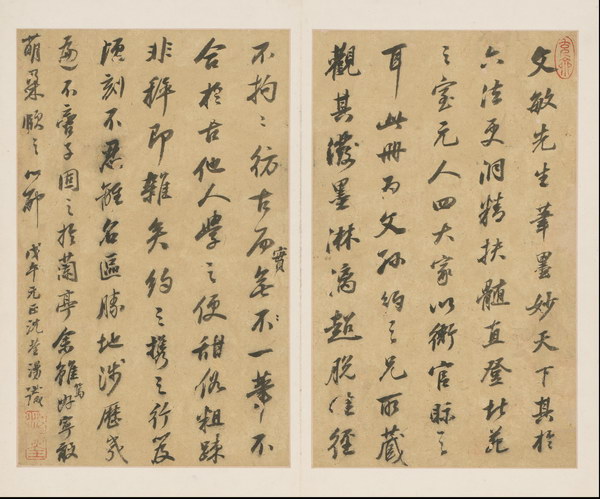 文敏先生筆墨妙天下其於
六法更洞精抉髓直登北苑
之室元人四大家以衙官眎之
耳此冊為文孫約之兄所藏
觀其潑墨淋漓超脫徑
不拘〻彷古而實無不一筆不
合於古他人學之便甜俗粗疎
非稺即雜矣約之攜之行笈
頃刻不忍離名區勝地涉歷幾
遍不啻子固之於蘭亭余雖篤好寧敢
萌朵頤之
戊午元正沈荃識